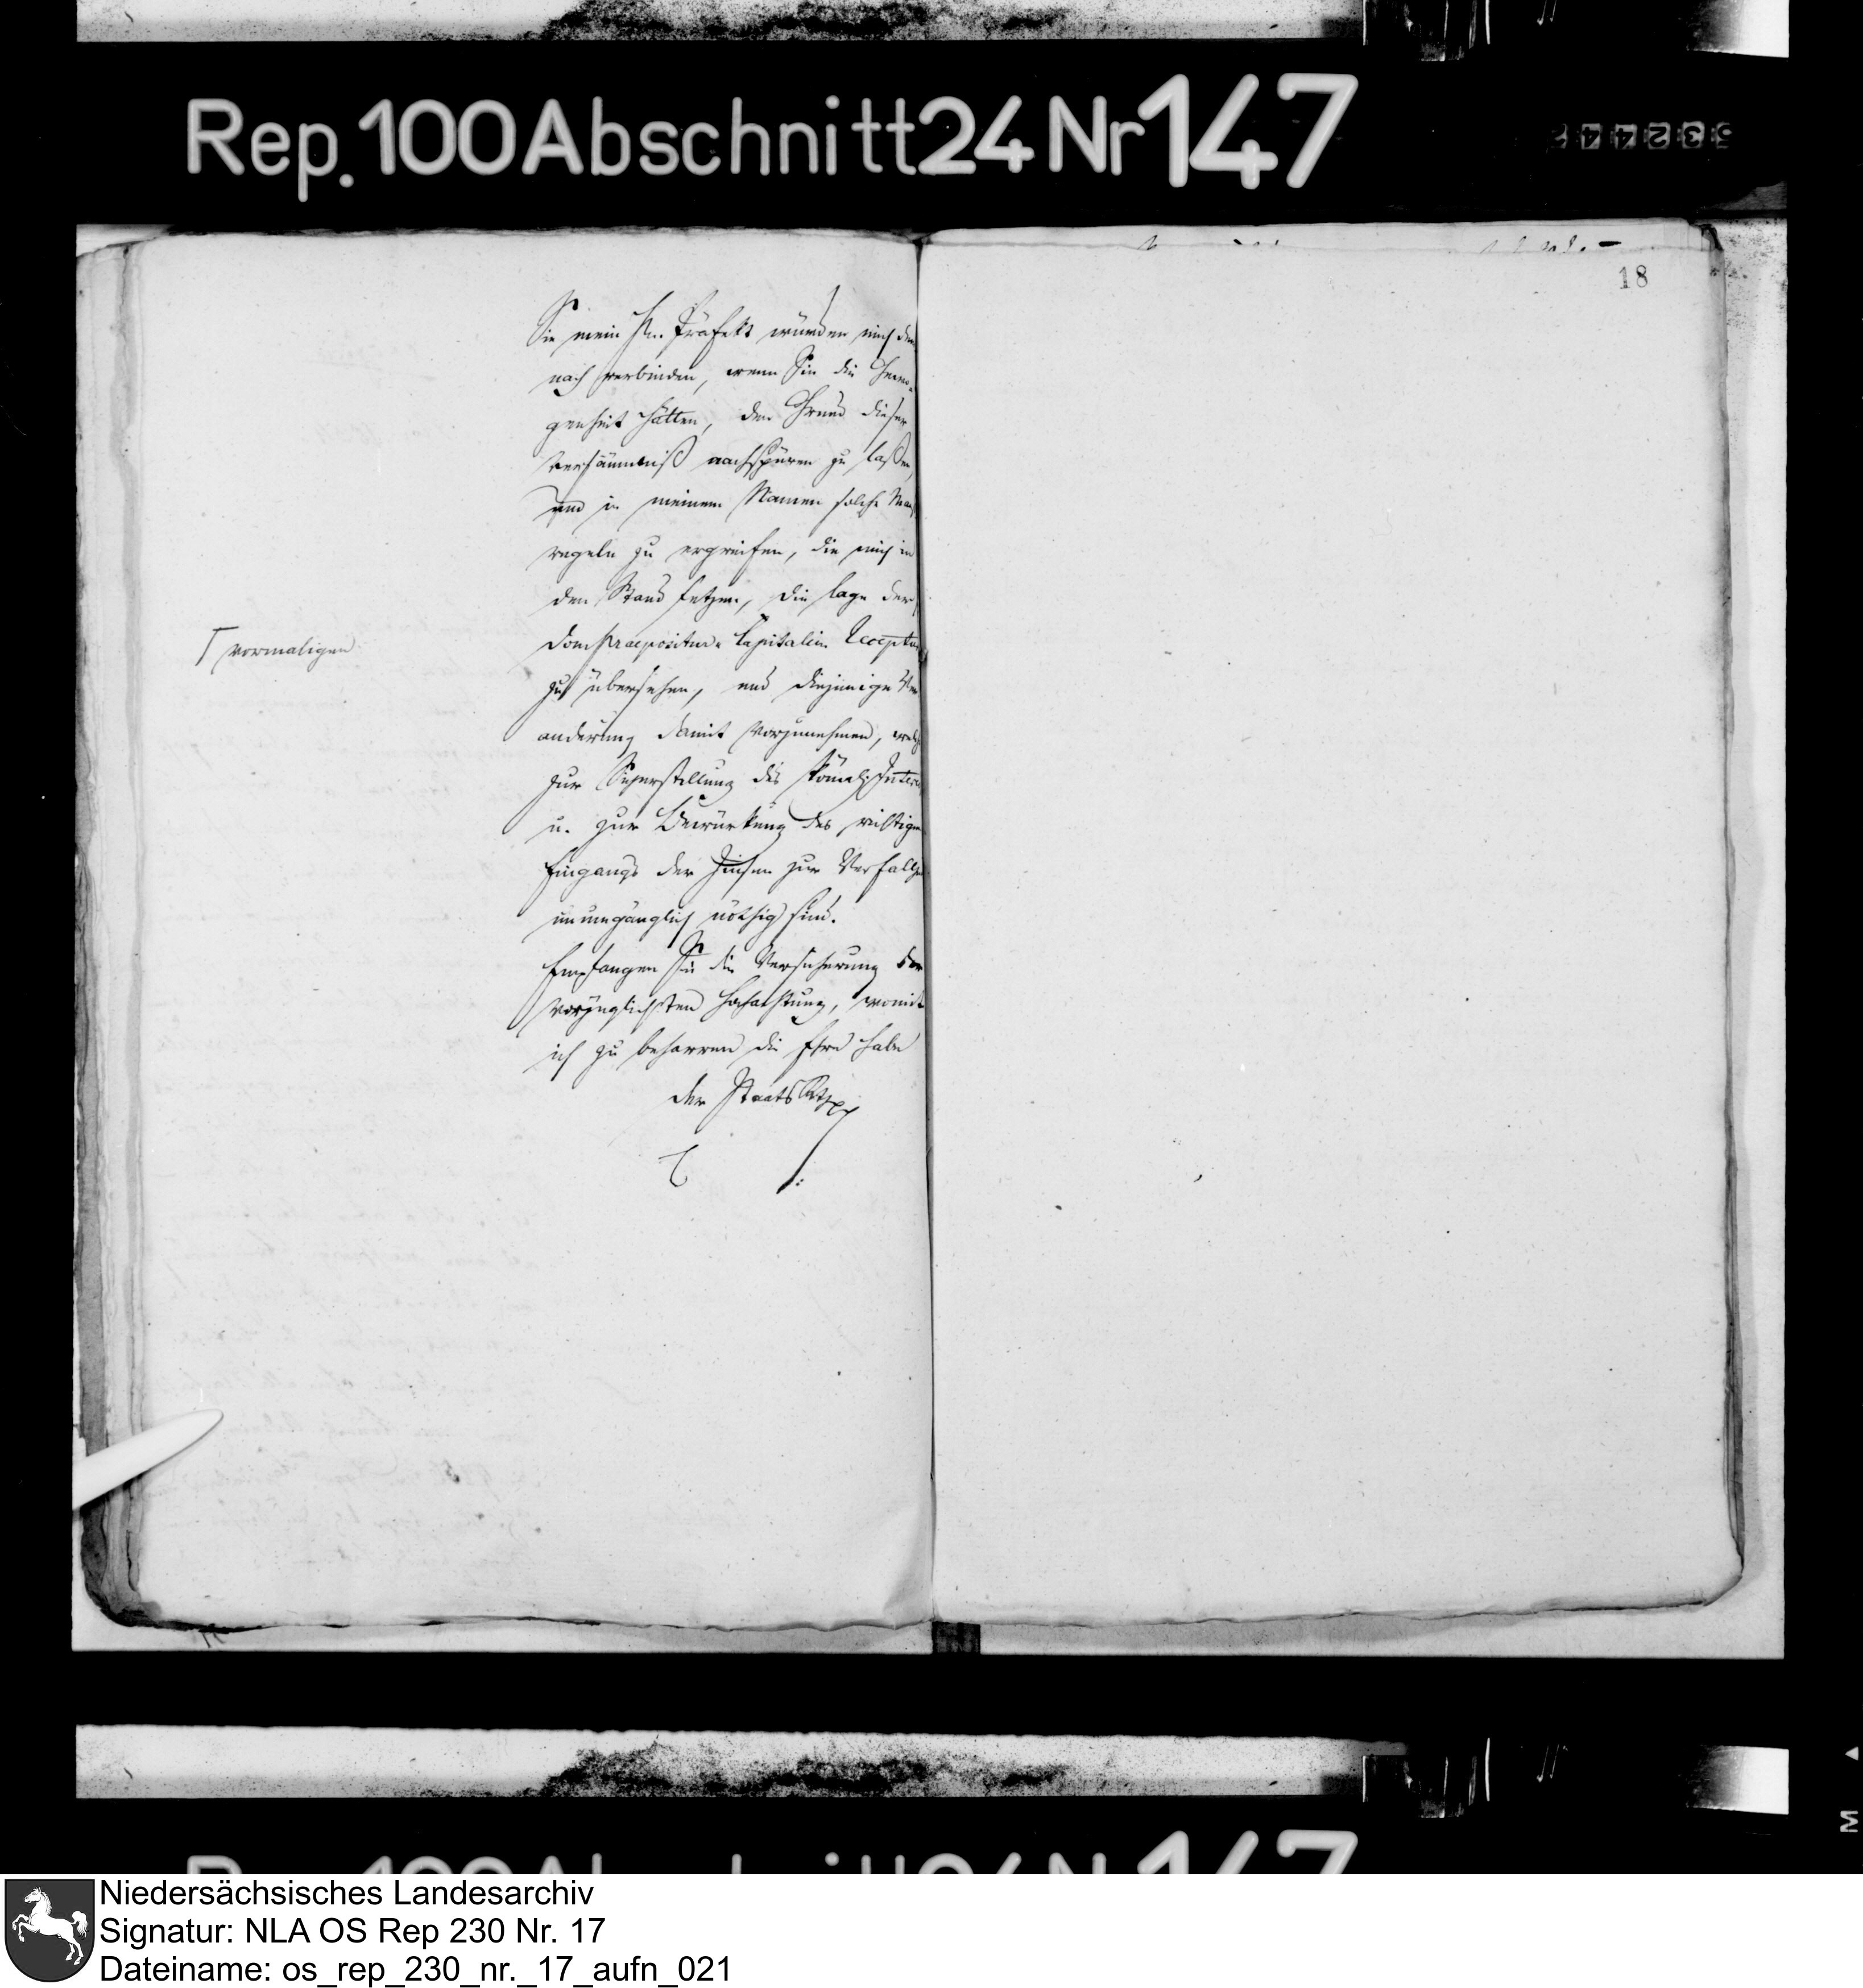 Rep. 100 Abschnitt 24 Nr 147
18
Sie mein Hr. Präfekt würden mich dem
nach verbinden, wenn Sie die Gewo
genheit hätten, den Grund dieser
Versäumniß nachspüren zu laßen,
und in meinem Namen solche Maaß
regeln zu ergreifen, die mich in
den Stand setzen, die Lage der
⎡ vormaligen
Dom Praepositur Capitalien Receptur
zu übersehen, und diejenige Ver
änderung damit vorzunehmen, welche
zur Sicherstellung des Königl. Interesse
u. zur Bewürkung des richtigen
Eingangs der Zinsen zur Verfallzeit
unumgänglich nöthig sind.
Empfangen Sie die Versicherung der
vorzüglichsten Hochachtung, womit
ich zu beharren die Ehre habe
der Staats
Niedersächsisches Landesarchiv
Signatur: NLA OS Rep 230 Nr. 17
Dateiname: os_rep_230_nr._17_aufn_021